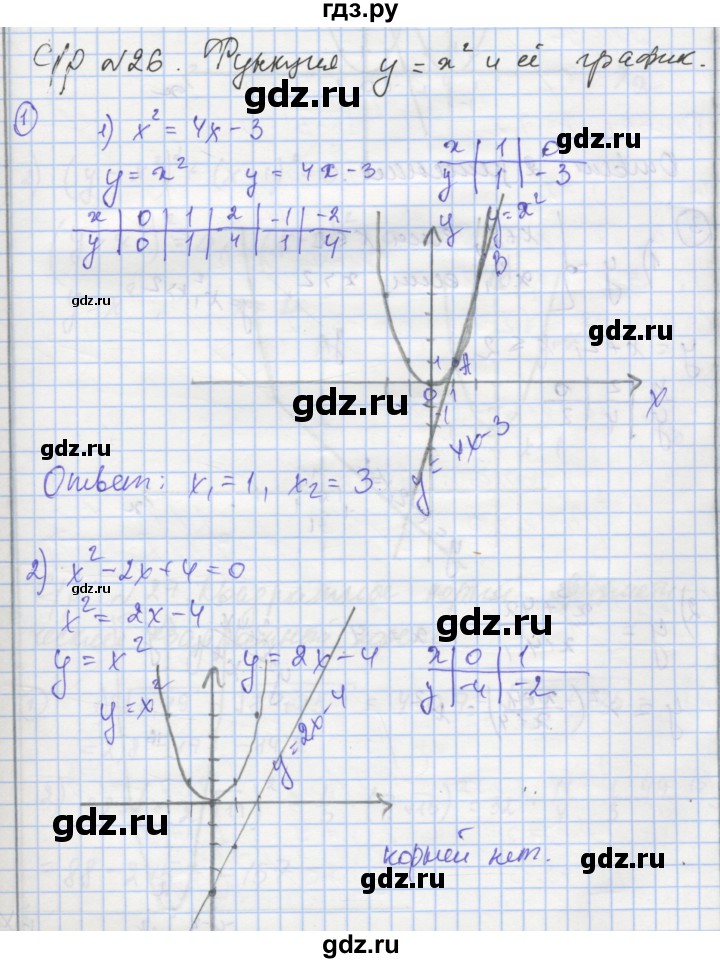 гдз.ру
С/р №26. Функция y = x² и её график.
gdz.ru
① 1) x² = 4x - 3
y = x² y = 4x - 3
x | 1 | 0
y | 1 | -3
x | 0 | 1 | 2 | -1 | -2
y | 0 | 1 | 4 | 1 | 4
y y = x²
B
gdz.ru
gdz.ru
1 A
0 1 x
-1
gdz.ru
gdz.ru
y = 4x - 3
Ответ: x₁ = 1, x₂ = 3.
gdz.ru
2) x² - 2x + 4 = 0
gdz.ru
x² = 2x - 4
gdz.ru
y = x² y = 2x - 4
x | 0 | 1
y | -4 | -2
y = x²
y = 2x - 4
gdz.ru
gdz.ru
корней нет.
gdz.ru
gdz.ru
gdz.ru